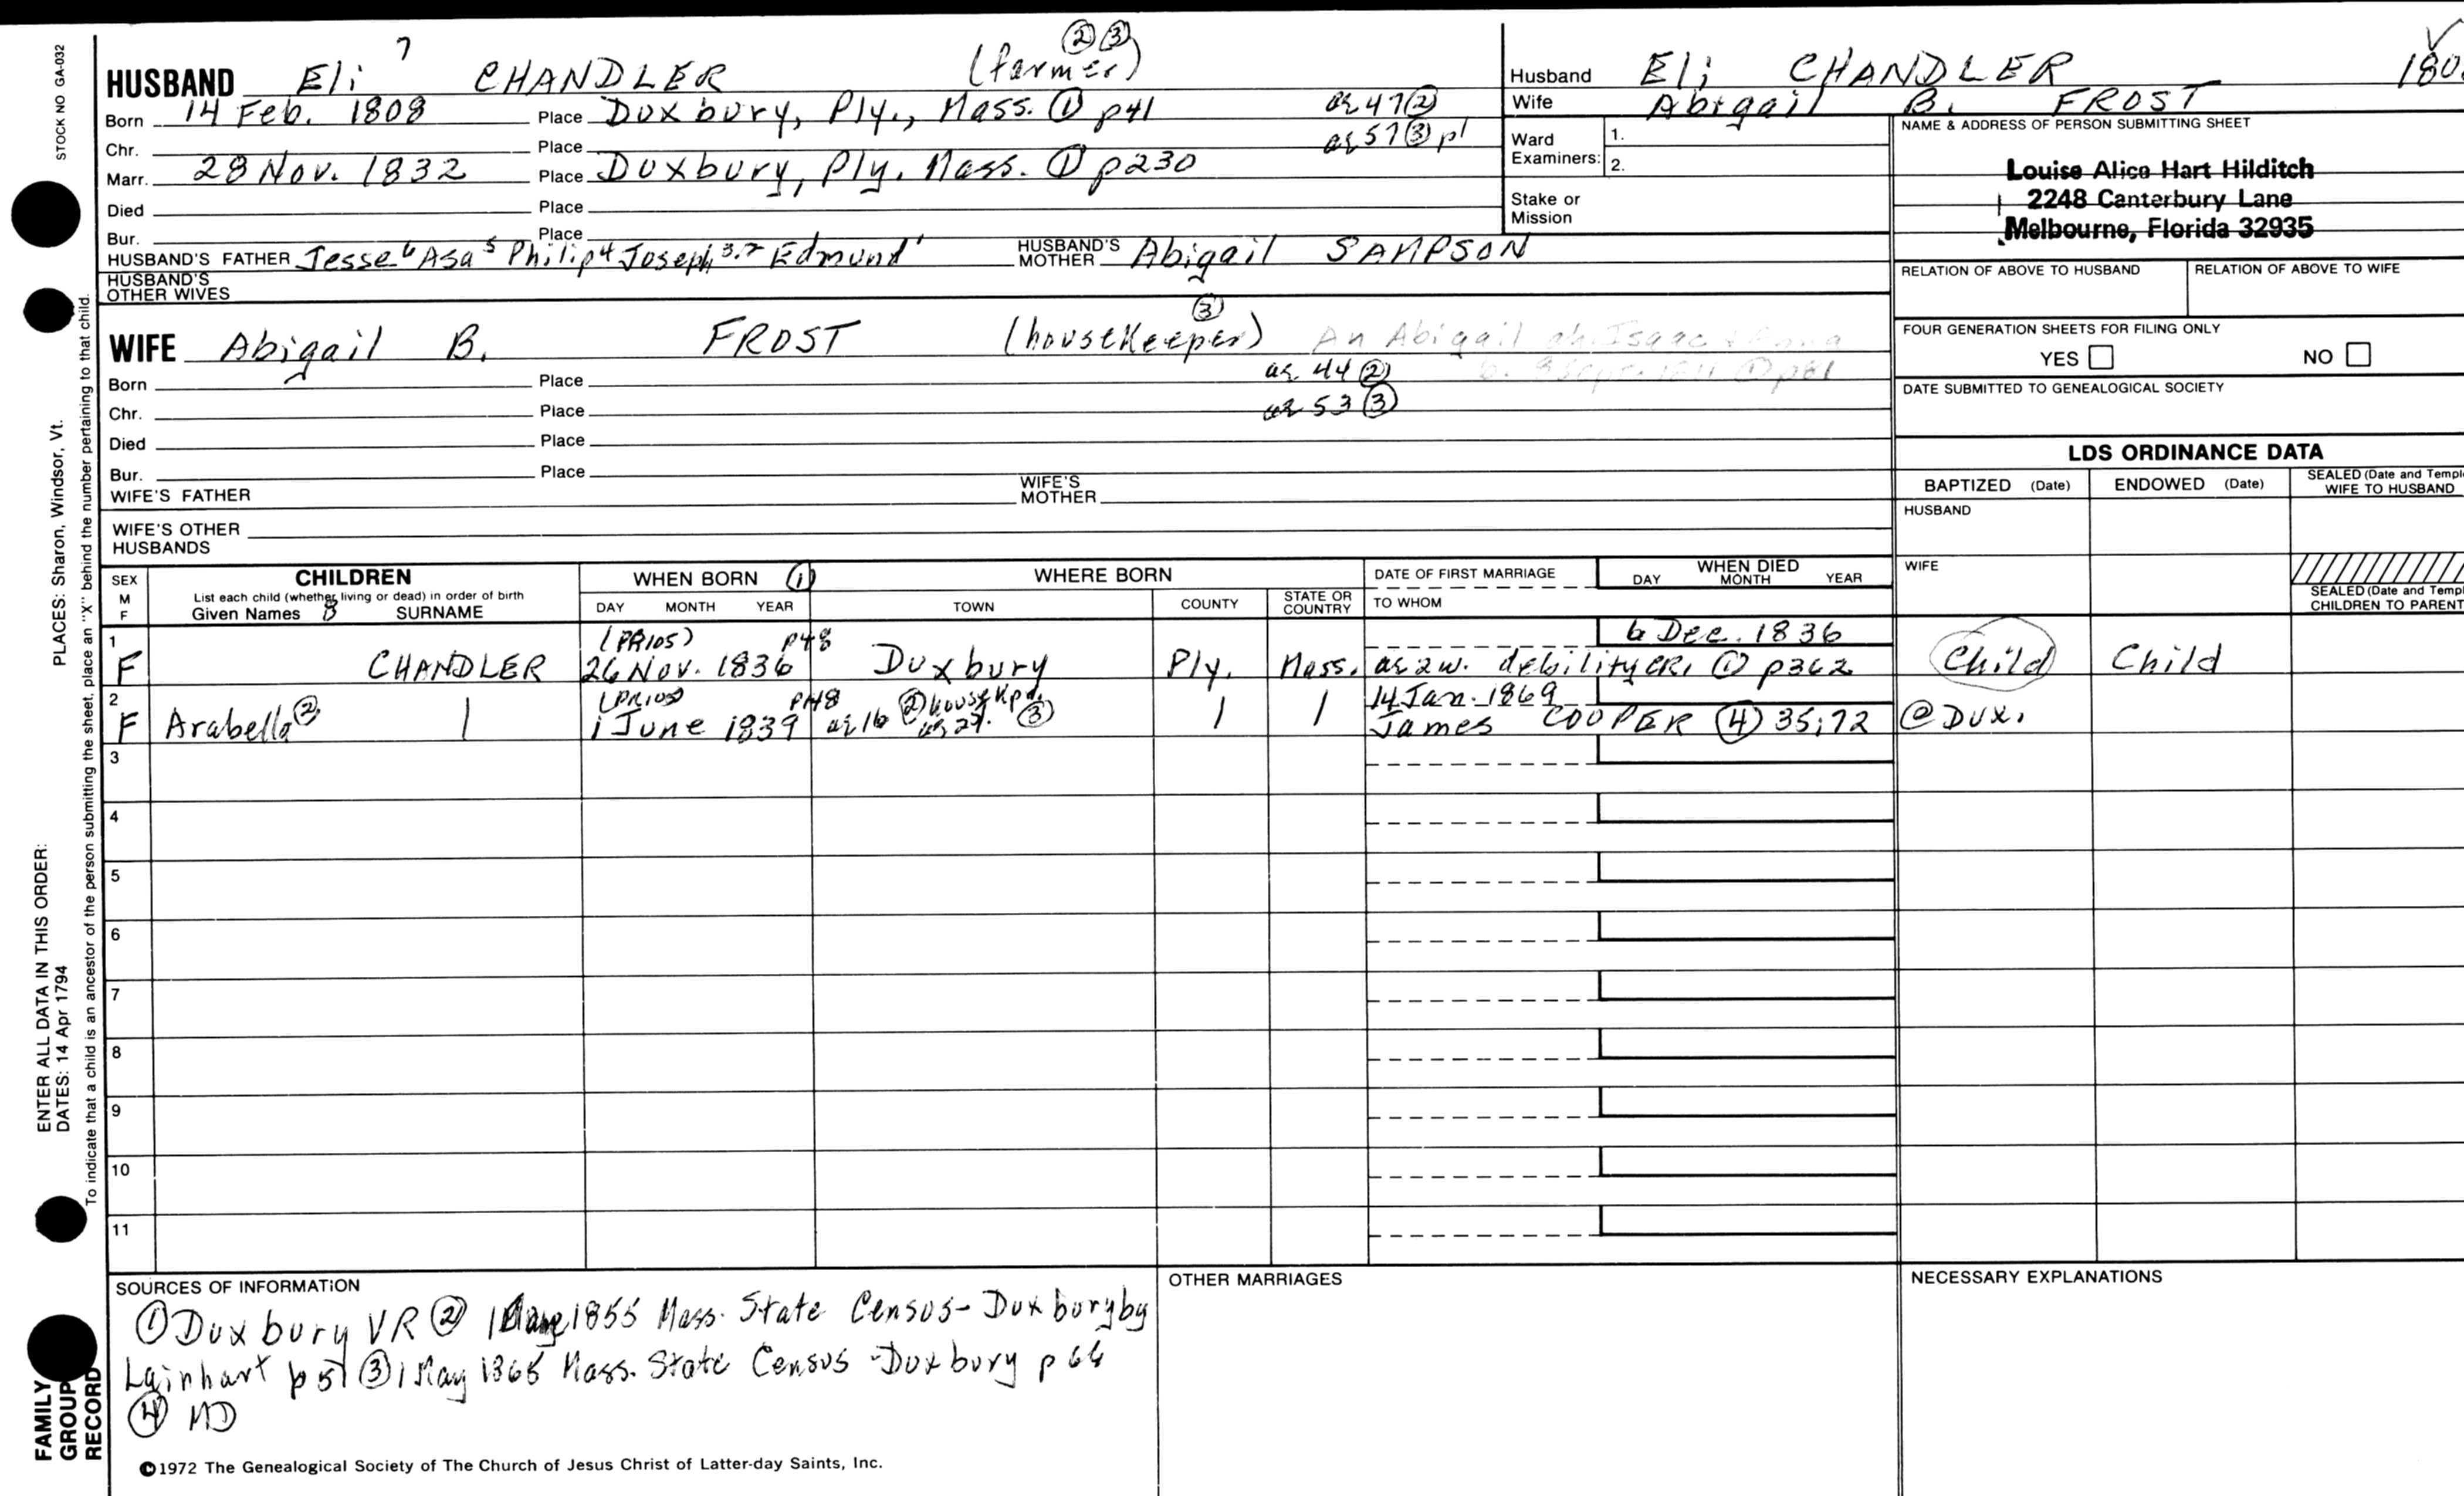 STOCK NO GA-032
PLACES: Sharon, Windsor, Vt.
ENTER ALL DATA IN THIS ORDER:
DATES: 14 Apr 1794
To indicate that a child is an ancestor of the person submitting the sheet, place an "X" behind the number pertaining to that child.
FAMILY
GROUP
RECORD
② ③
HUSBAND Eli 7 CHANDLER (farmer)
Born 14 Feb. 1808 Place Duxbury, Ply., Mass. ① p41 ae 47 ②
Chr. Place ae 57 ③ p1
Marr. 28 Nov. 1832 Place Duxbury, Ply. Mass. ① p230
Died Place
Bur. Place
HUSBAND'S FATHER Jesse 6 Asa 5 Philip 4 Joseph 3.2 Edmund 1 HUSBAND'S MOTHER Abigail SAMPSON
HUSBAND'S
OTHER WIVES
③
WIFE Abigail B. FROST (housekeeper) An Abigail Isaac
Born Place ae 44 ② ① p81
Chr. Place ae 53 ③
Died Place
Bur. Place
WIFE'S FATHER WIFE'S MOTHER
WIFE'S OTHER
HUSBANDS
Husband Eli CHANDLER 180
Wife Abigail B. FROST
Ward
Examiners:
1.
2.
Stake or
Mission
NAME & ADDRESS OF PERSON SUBMITTING SHEET
Louise Alice Hart Hilditch
2248 Canterbury Lane
Melbourne, Florida 32935
RELATION OF ABOVE TO HUSBAND RELATION OF ABOVE TO WIFE
FOUR GENERATION SHEETS FOR FILING ONLY
YES NO
DATE SUBMITTED TO GENEALOGICAL SOCIETY
LDS ORDINANCE DATA
BAPTIZED (Date) ENDOWED (Date) SEALED (Date and Templ
WIFE TO HUSBAND
HUSBAND
WIFE
SEALED (Date and Templ
CHILDREN TO PARENT
SEX
M
F
CHILDREN
List each child (whether living or dead) in order of birth
Given Names 8 SURNAME
WHEN BORN ①
DAY MONTH YEAR
WHERE BORN
TOWN COUNTY STATE OR COUNTRY
DATE OF FIRST MARRIAGE
TO WHOM
WHEN DIED
DAY MONTH YEAR
1 (PR105) p48 6 Dec. 1836
F CHANDLER 26 Nov. 1836 Duxbury Ply. Mass. ae 2w. debility CR1 ① p362 Child Child
2 (PR105) p48 ② housekpr. 14 Jan. 1869
F Arabella ② | 1 June 1839 ae 16 ae 27. ③ | | James COOPER ④ 35;72 @ Dux.
3
4
5
6
7
8
9
10
11
SOURCES OF INFORMATION
① Duxbury VR ② 1855 Mass. State Census - Duxbury by
Lainhart p 51 ③ 1 May 1865 Mass. State Census - Duxbury p 64
④ MD
OTHER MARRIAGES
NECESSARY EXPLANATIONS
©1972 The Genealogical Society of The Church of Jesus Christ of Latter-day Saints, Inc.